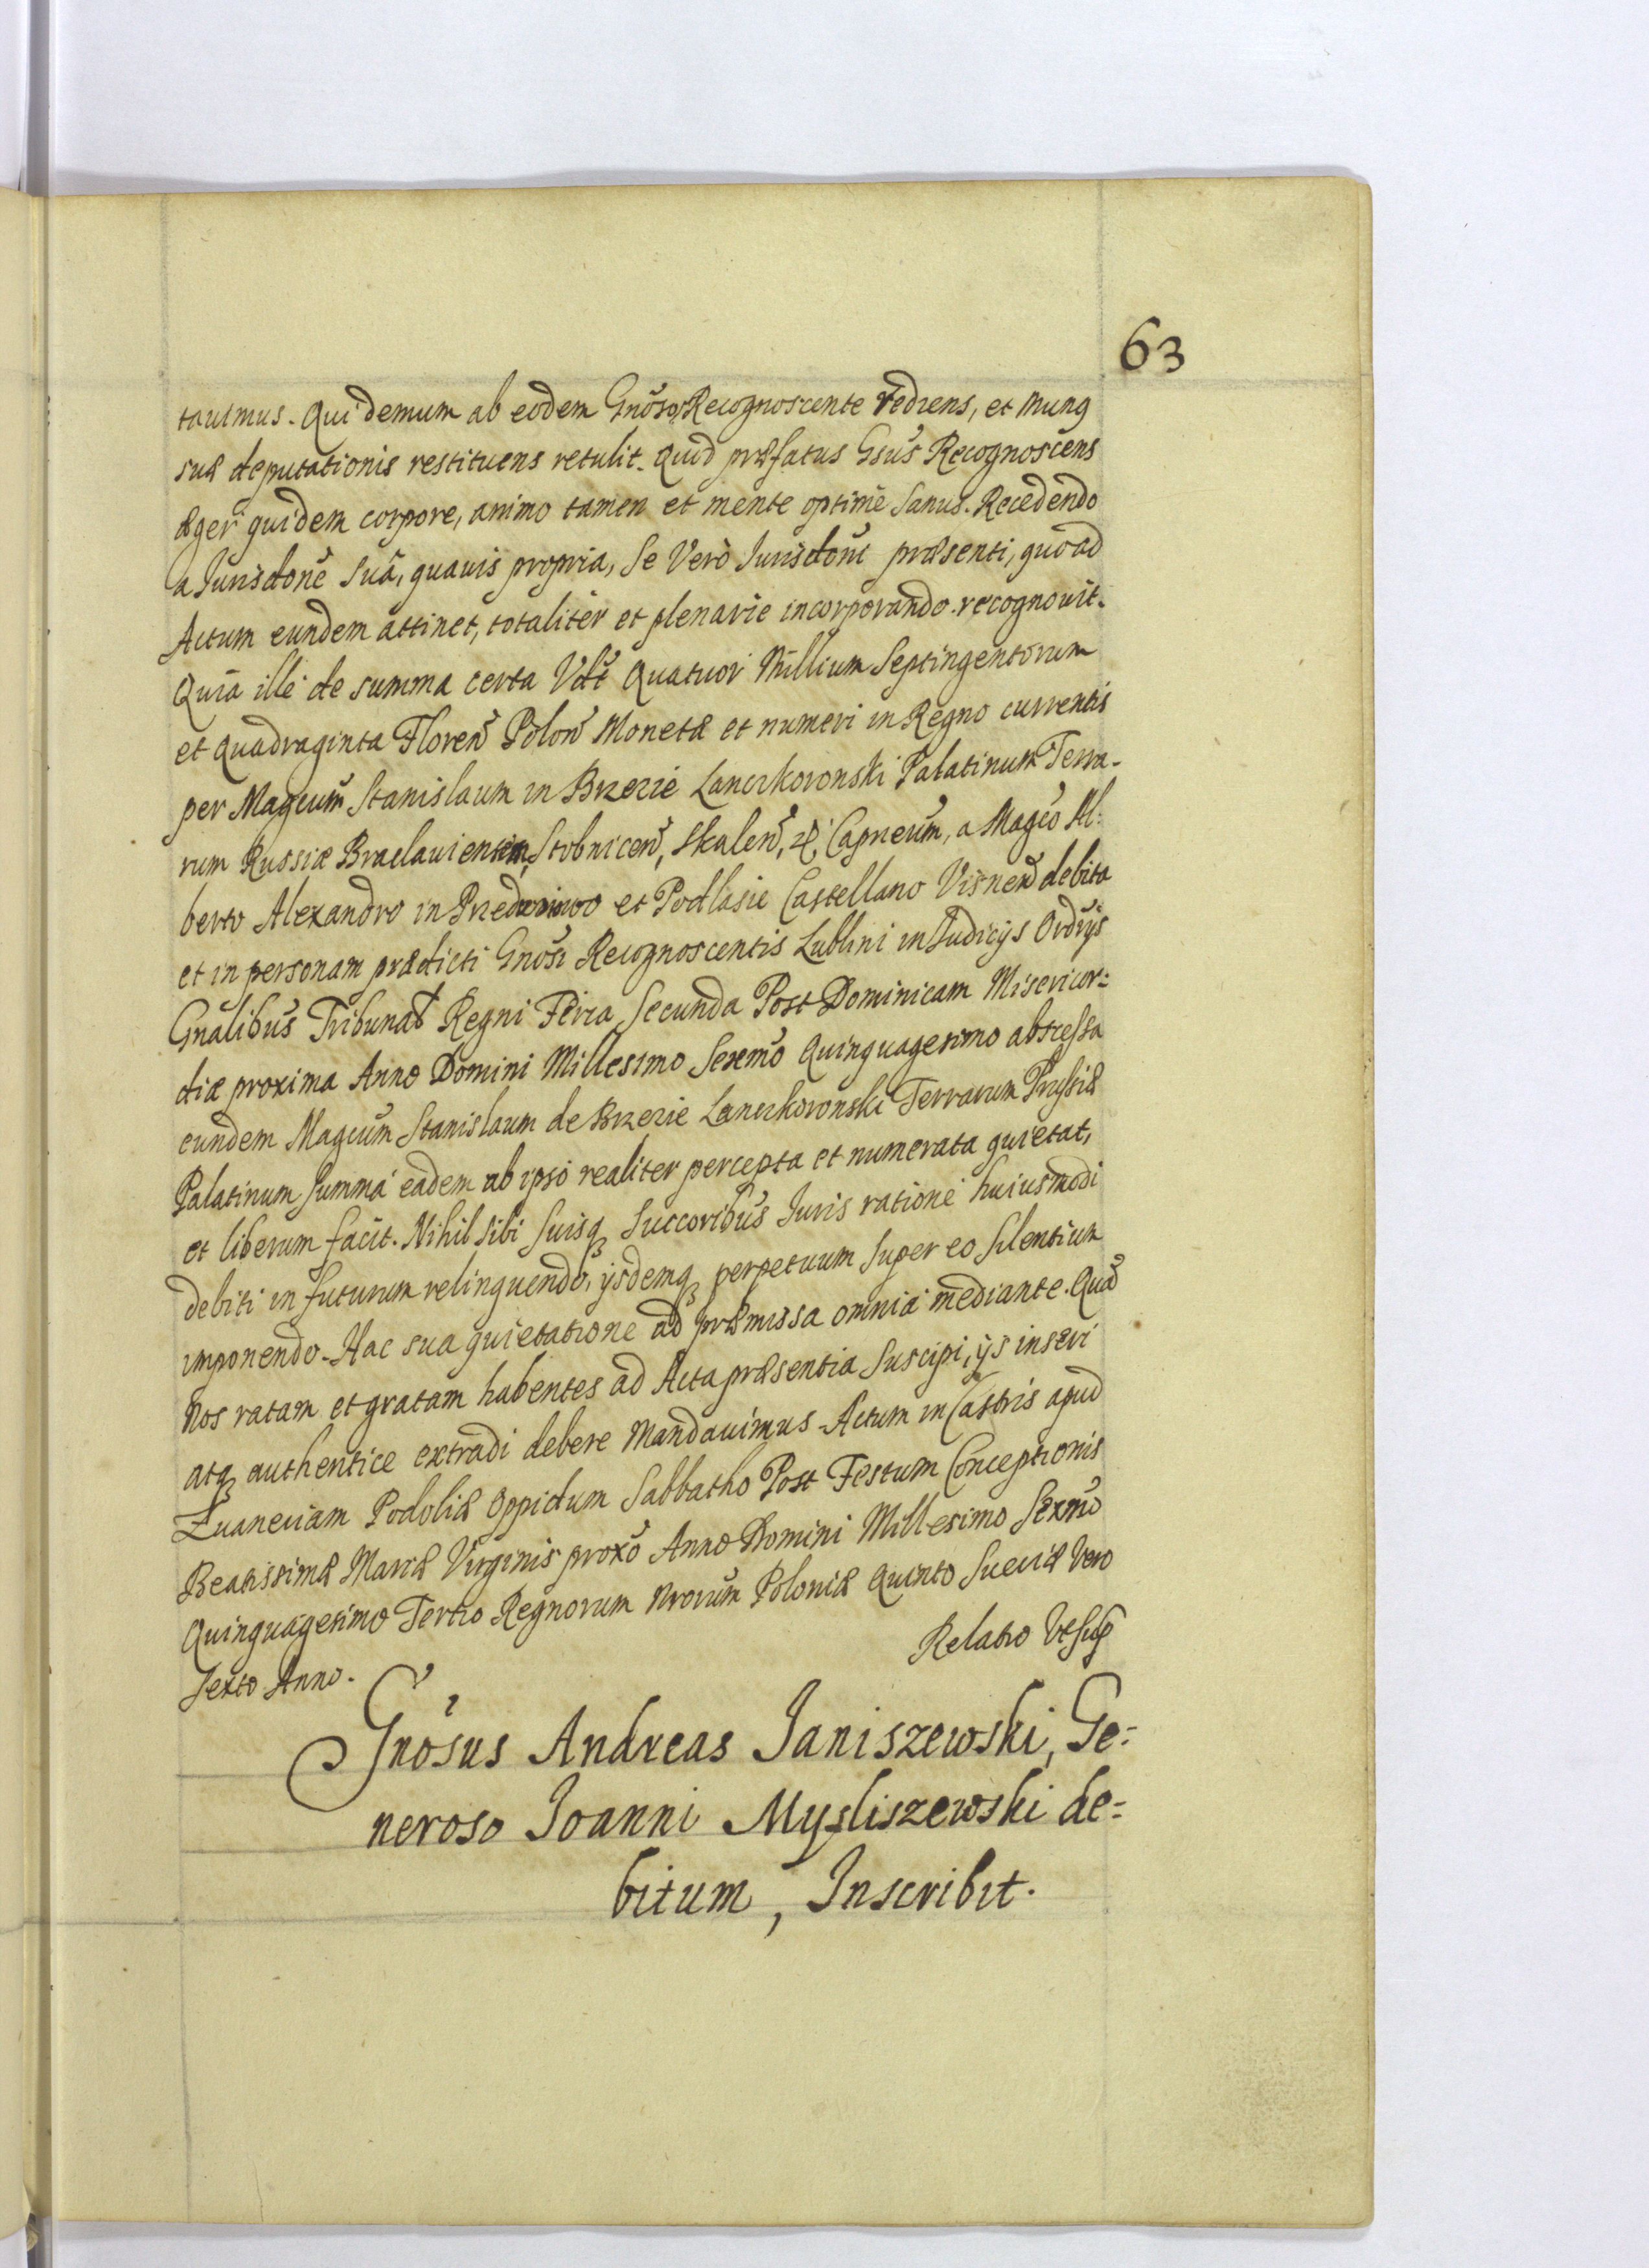 63
tauimus. Qui demum ab eodem Gnoso Recognoscente rediens, et mung
suæ deputationis restituens retulit. Quod præfatus Gsus Recognoscens
æger quidem corpore, animo tamen et mente optime sanus. Recedendo
a Jurisdone suâ, quauis propria, se Verò Jurisdoni præsenti, quoad
Actum eundem attinet, totaliter et plenarie incorporando recognouit.
Quia ille de summa certa Vdt Quatuor Millium Septingentorum
et Quadraginta Floren Polon Monetæ et numeri in Regno currentis
per Magcum Stanislaum in Brzezie Lanckoronski Palatinum Terra-
rum Russiæ Braclauiensem, Stobnicen, Skalen, &, Capneum, a Magco Al:
berto Alexandro in et Podlasie Castellano Visnen debita
et in personam prædicti Gnosi Recognoscentis Lublini in Judicijs Ordrijs
Gnalibus Tribunal Regni Feria Secunda Post Dominicam Misericor:
diæ proxima Anno Domini Millesimo Sexmo Quinquagesimo abscessa
eundem Magcum Stanislaum de Brzezie Lanckoronski Terrarum Russiæ
Palatinum summa eadem ab ipso realiter percepta et numerata quietat,
et liberum facit. Nihil sibi suisq succoribus Juris ratione huiusmodi
debiti in futurum relinquendo, ijsdemq perpetuum super eo silentium
imponendo. Hac sua quietatione ad præmissa omnia mediante. Quod
Nos ratam et gratam habentes ad Acta præsentia suscipi, ijs inseri
atq authentice extradi debere Mandauimus. Actum in Castris apud
Zuaneciam Podoliæ Oppidum Sabbatho Post Festum Conceptionis
Beatissimæ Mariæ Virginis proxo Anno Domini Millesimo Sexmo
Quinquagesimo Tertio Regnorum Nrorum Poloniæ Quinto Sueciæ Vero
Sexto Anno.
Relatio Vt Sup
Gnosus Andreas Janiszewski, Ge:
neroso Joanni Mysliszewski de:
bitum, Inscribit.